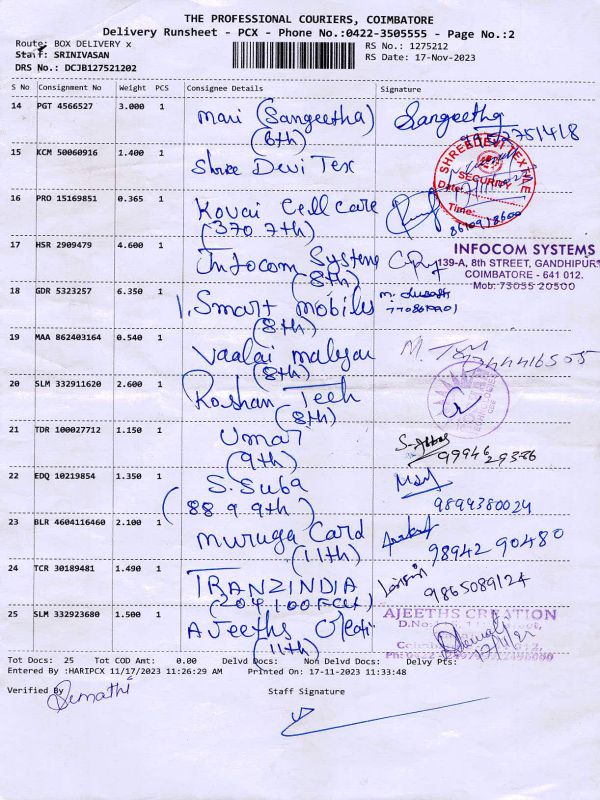 THE PROFESSIONAL COURIERS, COIMBATORE
Delivery Runsheet - PCX - Phone No.:0422-3505555 - Page No.:2
Route: BOX DELIVERY x
RS No.: 1275212
Staff: SRINIVASAN
RS Date: 17-Nov-2023
DRS No.: DCJB127521202
S No Consignment No Weight PCS Consignee Details Signature
14 PGT 4566527 3.000 1 Mari (Sangeetha) Sangeetha
(6th)
15 KCM 50060916 1.400 1 Shree Devi Tex
SHREEDEVI TEXTILE
SECURITY
Date:
Time:
16 PRO 15169851 0.365 1 Kovai Cell care
(370 7th) 8610918600
17 HSR 2909479 4.600 1 Infocom Systems
(8th)
INFOCOM SYSTEMS
139-A, 8th STREET, GANDHIPUR
COIMBATORE - 641 012.
Mob: 73055 20500
18 GDR 5323257 6.350 1 1. Smart mobiles
(8th)
19 MAA 862403164 0.540 1 Vaalai
(8th)
20 SLM 332911620 2.600 1 Roshan Tech
(8th)
21 TDR 100027712 1.150 1 Umar
(9th)
22 EDQ 10219854 1.350 1 S. Suba
(88 9 9th) 9899380024
23 BLR 4604116460 2.100 1 Muruga Card
(11th) 98942 90480
24 TCR 30189481 1.490 1 TRANZINDIA
9865089124
25 SLM 332923680 1.500 1 Ajeeths Creati
(11th)
AJEETHS CREATION
D.No:
Tot Docs: 25 Tot COD Amt: 0.00 Delvd Docs: Non Delvd Docs: Delvy Pts:
Entered By :HARIPCX 11/17/2023 11:26:29 AM Printed On: 17-11-2023 11:33:48
Verified By Staff Signature
Sumathi